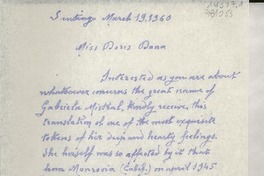 Santiago March 19, 1960
Miss Doris Dana
Interested as you are about
whatsoever concerns the great name of
Gabriela Mistral, kindly receive, this
translation of one of the most exquisite
tokens of her deep and hearty feelings.
She himself was so affected by it that
from Monrovia (Calif.) on april 1945